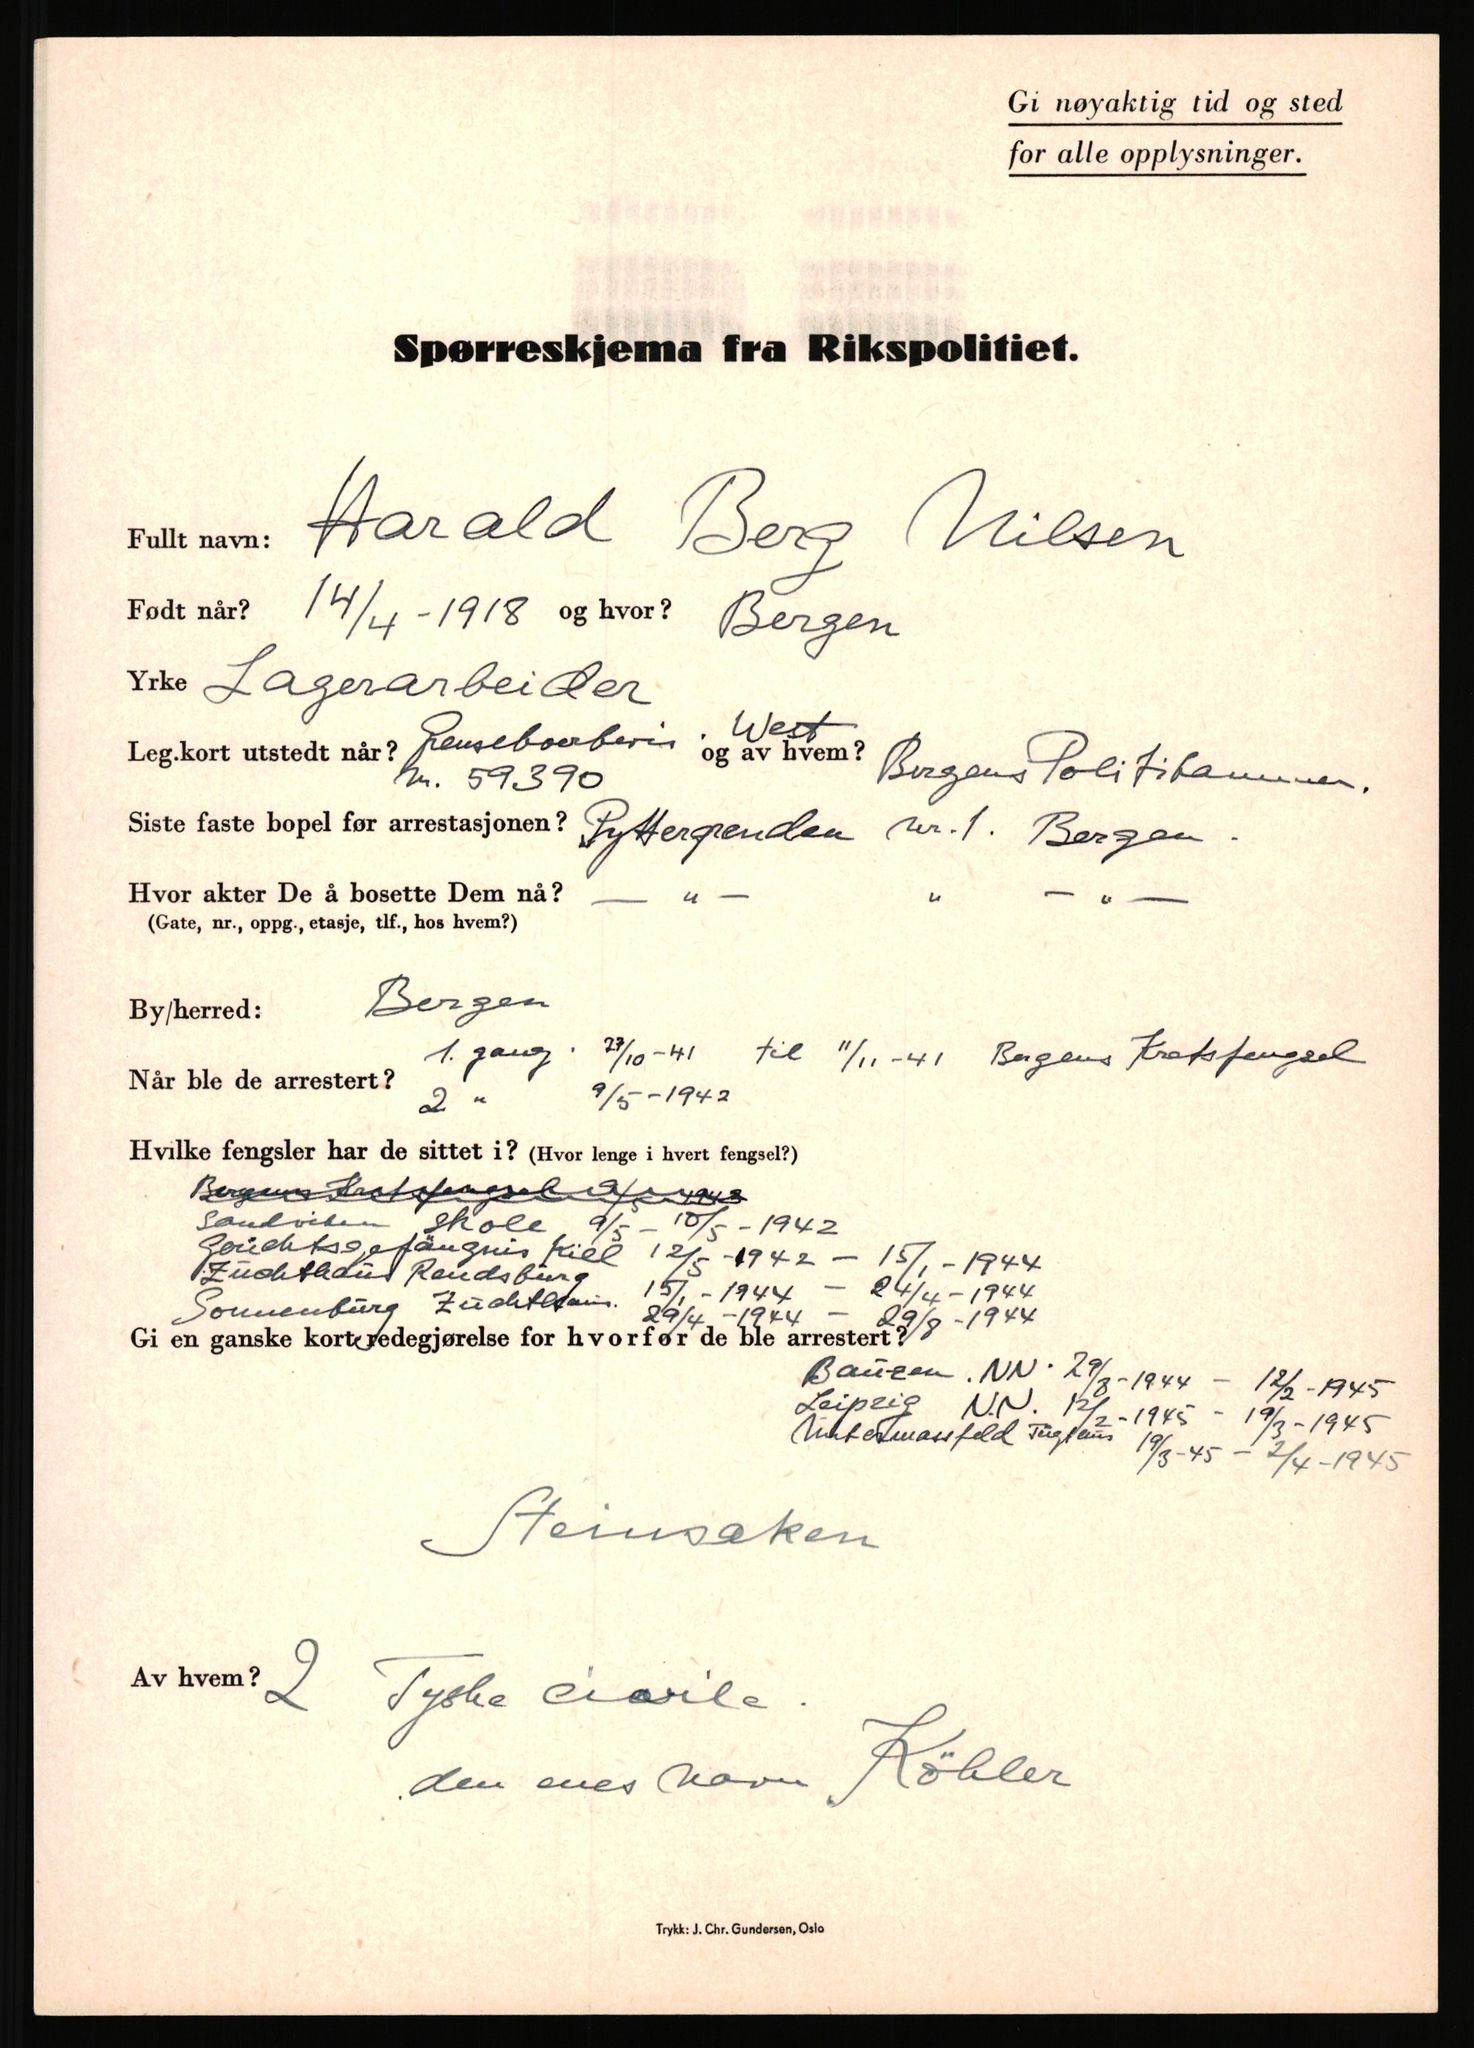 Gi nøyaktig tid og sted
for alle opplysninger.
Spørreskjema fra Rikspolitiet.
Fullt navn: Harald Berg Nilsen
Født når? 14/4 - 1918 og hvor? Bergen
Yrke Lagerarbeider
Leg.kort utstedt når? Grenseboerbevis. West og av hvem? Bergens Politikammer.
Nr. 59390
Siste faste bopel før arrestasjonen? Pyttergrenden nr. 1. Bergen.
Hvor akter De å bosette Dem nå? — " — " — " —
(Gate, nr., oppg., etasje, tlf., hos hvem?)
By/herred: Bergen
1. gang. 27/10-41 til 11/11-41 Bergens Kretsfengsel
Når ble de arrestert?
2 " 9/5-1942
Hvilke fengsler har de sittet i? (Hvor lenge i hvert fengsel?)
Bergens Kretsfengsel 9/5 1942
Sandviken skole 9/5 - 10/5 - 1942
Gerichtsgefängnis Kiel 12/5-1942 - 15/1-1944
Züchthaus Rendsbürg 15/1-1944 - 24/4-1944
Sonnenbürg Züchthaus. 29/4-1944 - 29/8-1944
Gi en ganske kort redegjørelse for hvorfor de ble arrestert?
Baüzen. NN. 29/8-1944 - 12/2-1945
Leipzig N.N. 12/2-1945 - 19/3-1945
Untermassfeld Tugthus 19/3-45 - 2/4-1945
Steinsaken
Av hvem? 2 Tyske civile.
den enes navn Köhler
Trykk: J. Chr. Gundersen, Oslo